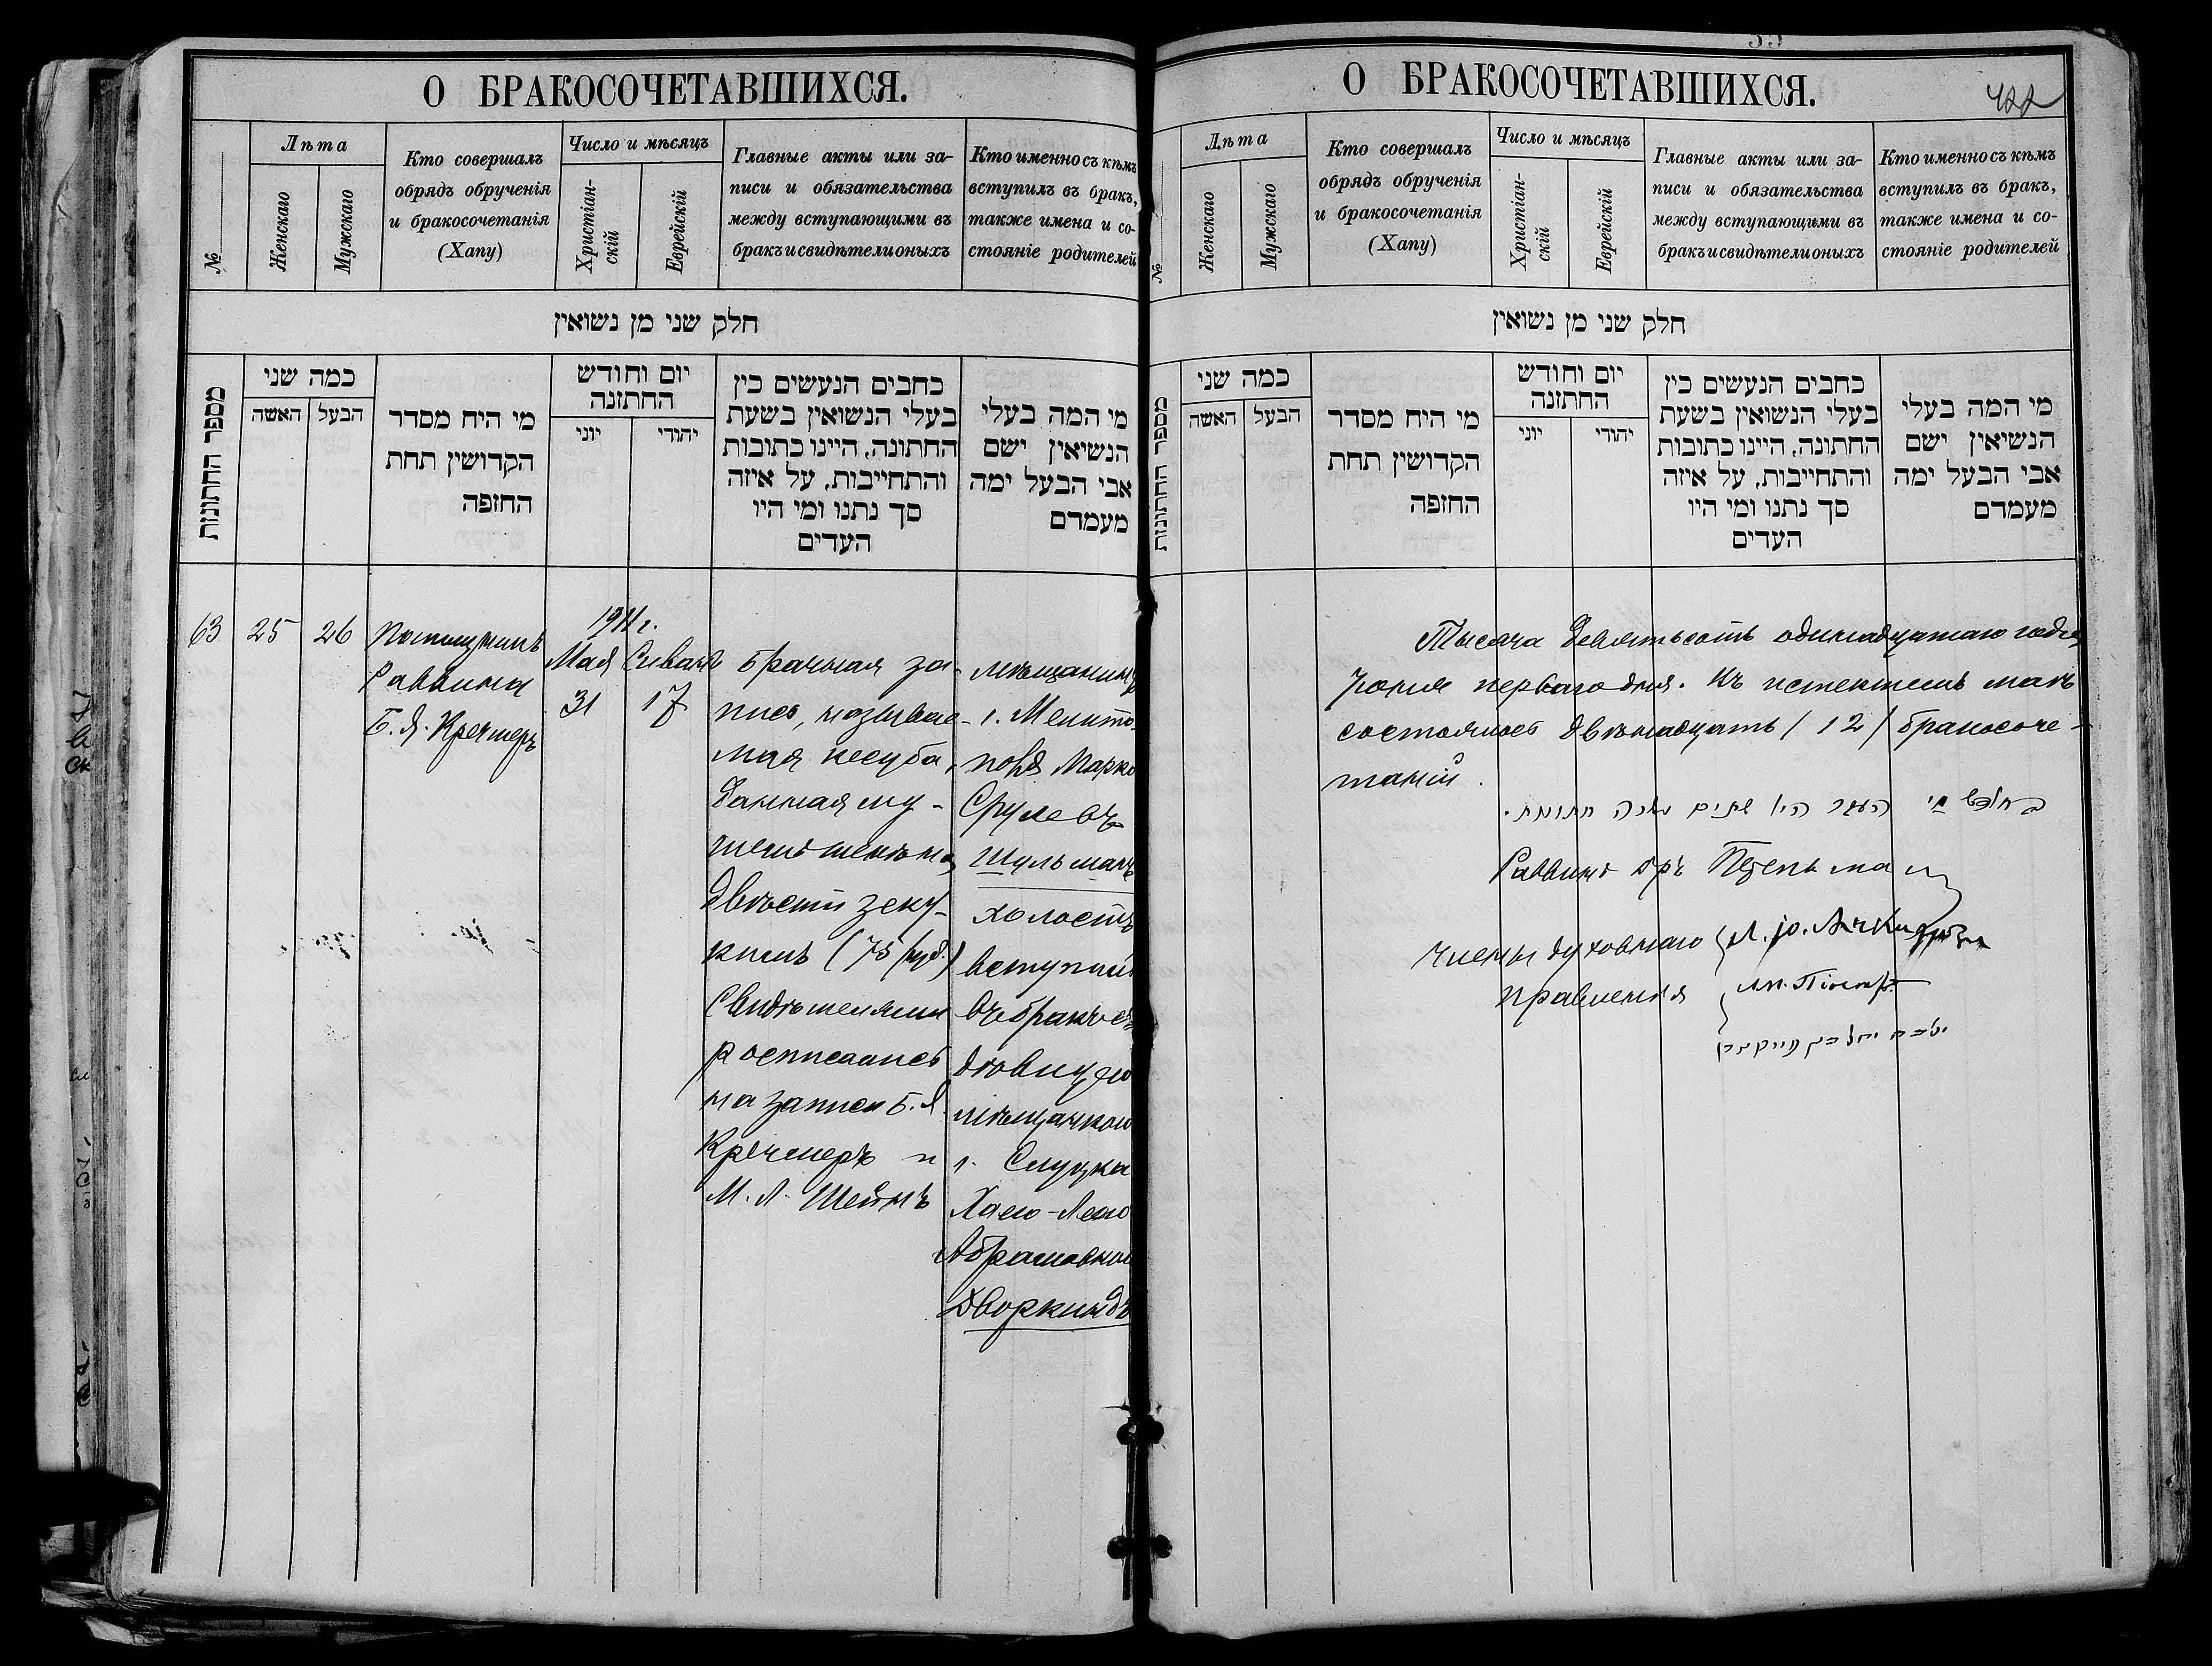 О БРАКОСОЧЕТАВШИХСЯ.
№
Лѣта
Женскаго
Мужскаго
Кто совершалъ
обрядъ обрученія
и бракосочетанія
(Хапу)
Число и мѣсяцъ
Христіан-
скій
Еврейскій
Главные акты или за-
писи и обязательства
между вступающими въ
бракъ и свидѣтели оныхъ
Кто именно съ кѣмъ
вступилъ въ бракъ,
также имена и со-
стояніе родителей
חלק שני מן נשואין
מספר החתונות
כמה שני
האשה
הבעל
מי היח מסדר
הקדושין תחת
החופה
יום וחודש
החתזנה
יוני
יהודי
כחבים הנעשים כין
בעלי הנשואין בשעת
החתונה, היינו כתובות
והתחייבות, על איזה
סך נתנו ומי היו
העדים
מי המה בעלי
הנשיאין ישם
אבי הבעל ימה
מעמדם
63
25
26
Помощникъ
Раввина
Б. Я. Кречмеръ
1911 г.
Мая
31
Сивана
17
Брачная за-
пись, называе-
мая кесуба,
данная му-
жемъ женѣ на
двѣсти зеку-
кимъ (75 руб.)
Свидѣтелями
росписались
на записи Б. Я.
Кречмеръ и
М. Л. Шейнъ
мѣщанинъ
г. Мелито-
поля Марко
Срулевъ
Шульманъ
холостъ
вступилъ
въ бракъ съ
дѣвицею
мѣщанкою
г. Слуцка
Хаею-Леею
Абрамовною
Дворкиндъ
О БРАКОСОЧЕТАВШИХСЯ.
422
№
Лѣта
Женскаго
Мужскаго
Кто совершалъ
обрядъ обрученія
и бракосочетанія
(Хапу)
Число и мѣсяцъ
Христіан-
скій
Еврейскій
Главные акты или за-
писи и обязательства
между вступающими въ
бракъ и свидѣтели оныхъ
Кто именно съ кѣмъ
вступилъ въ бракъ,
также имена и со-
стояніе родителей
חלק שני מן נשואין
מספר החתונות
כמה שני
האשה
הבעל
מי היח מסדר
הקדושין תחת
החזפה
יום וחודש
החתזנה
יוני
יהודי
כחבים הנעשים כין
בעלי הנשואין בשעת
החתונה, היינו כתובות
והתחייבות, על איזה
סך נתנו ומי היו
העדים
מי המה בעלי
הנשיאין ישם
אבי הבעל ימה
מעמדם
Тысяча девятьсотъ одинадцатаго года
Іюня перваго дня. Въ истекшемъ маѣ
состоялось двѣнадцать (12) бракосоче-
таній.
בחודש מי העבר היו שתים עשרה חתונות.
Раввинъ
Члены духовнаго
правленія